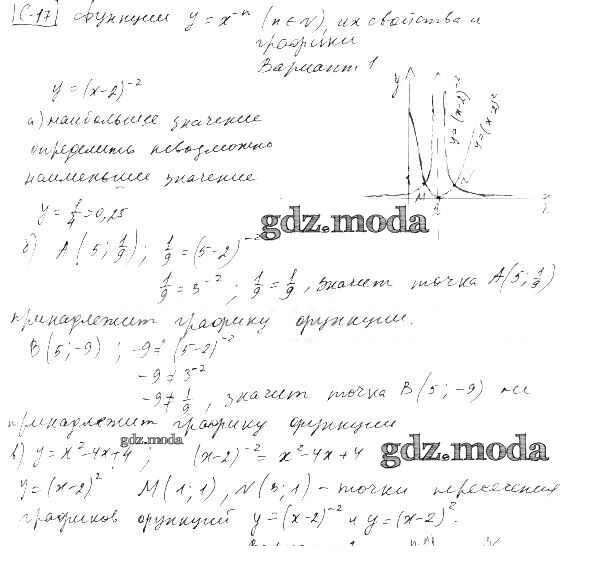 С-17 Функции y = x⁻ⁿ (n ∈ N), их свойства и
графики
Вариант 1
y = (x-2)⁻²
а) наибольшее значение
определить невозможно
наименьшее значение
y = 1/4 = 0,25
б) A(5; 1/9); 1/9 = (5-2)⁻²
1/9 = 3⁻²; 1/9 = 1/9, значит точка A(5; 1/9)
принадлежит графику функции.
B(5; -9); -9 ≠ (5-2)⁻²
-9 ≠ 3⁻²
-9 ≠ 1/9, значит точка B(5; -9) не
принадлежит графику функции
в) y = x²-4x+4; (x-2)⁻² = x²-4x+4
y = (x-2)² M(1; 1), N(3; 1) - точки пересечения
графиков функций y = (x-2)⁻² и y = (x-2)².
y
y = (x-2)⁻²
y = (x-2)²
M
N
x
gdz.moda
gdz.moda
gdz.moda